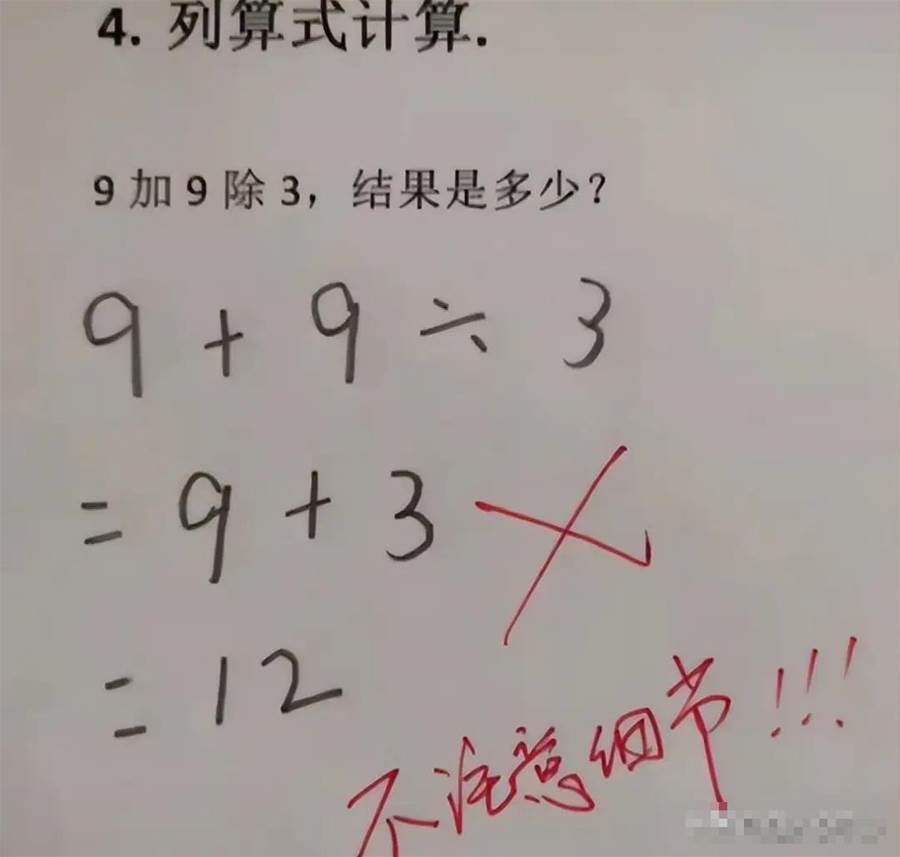 4. 列算式计算.
9 加 9 除 3，结果是多少？
9 + 9 ÷ 3
= 9 + 3
= 12
不注意细节!!!